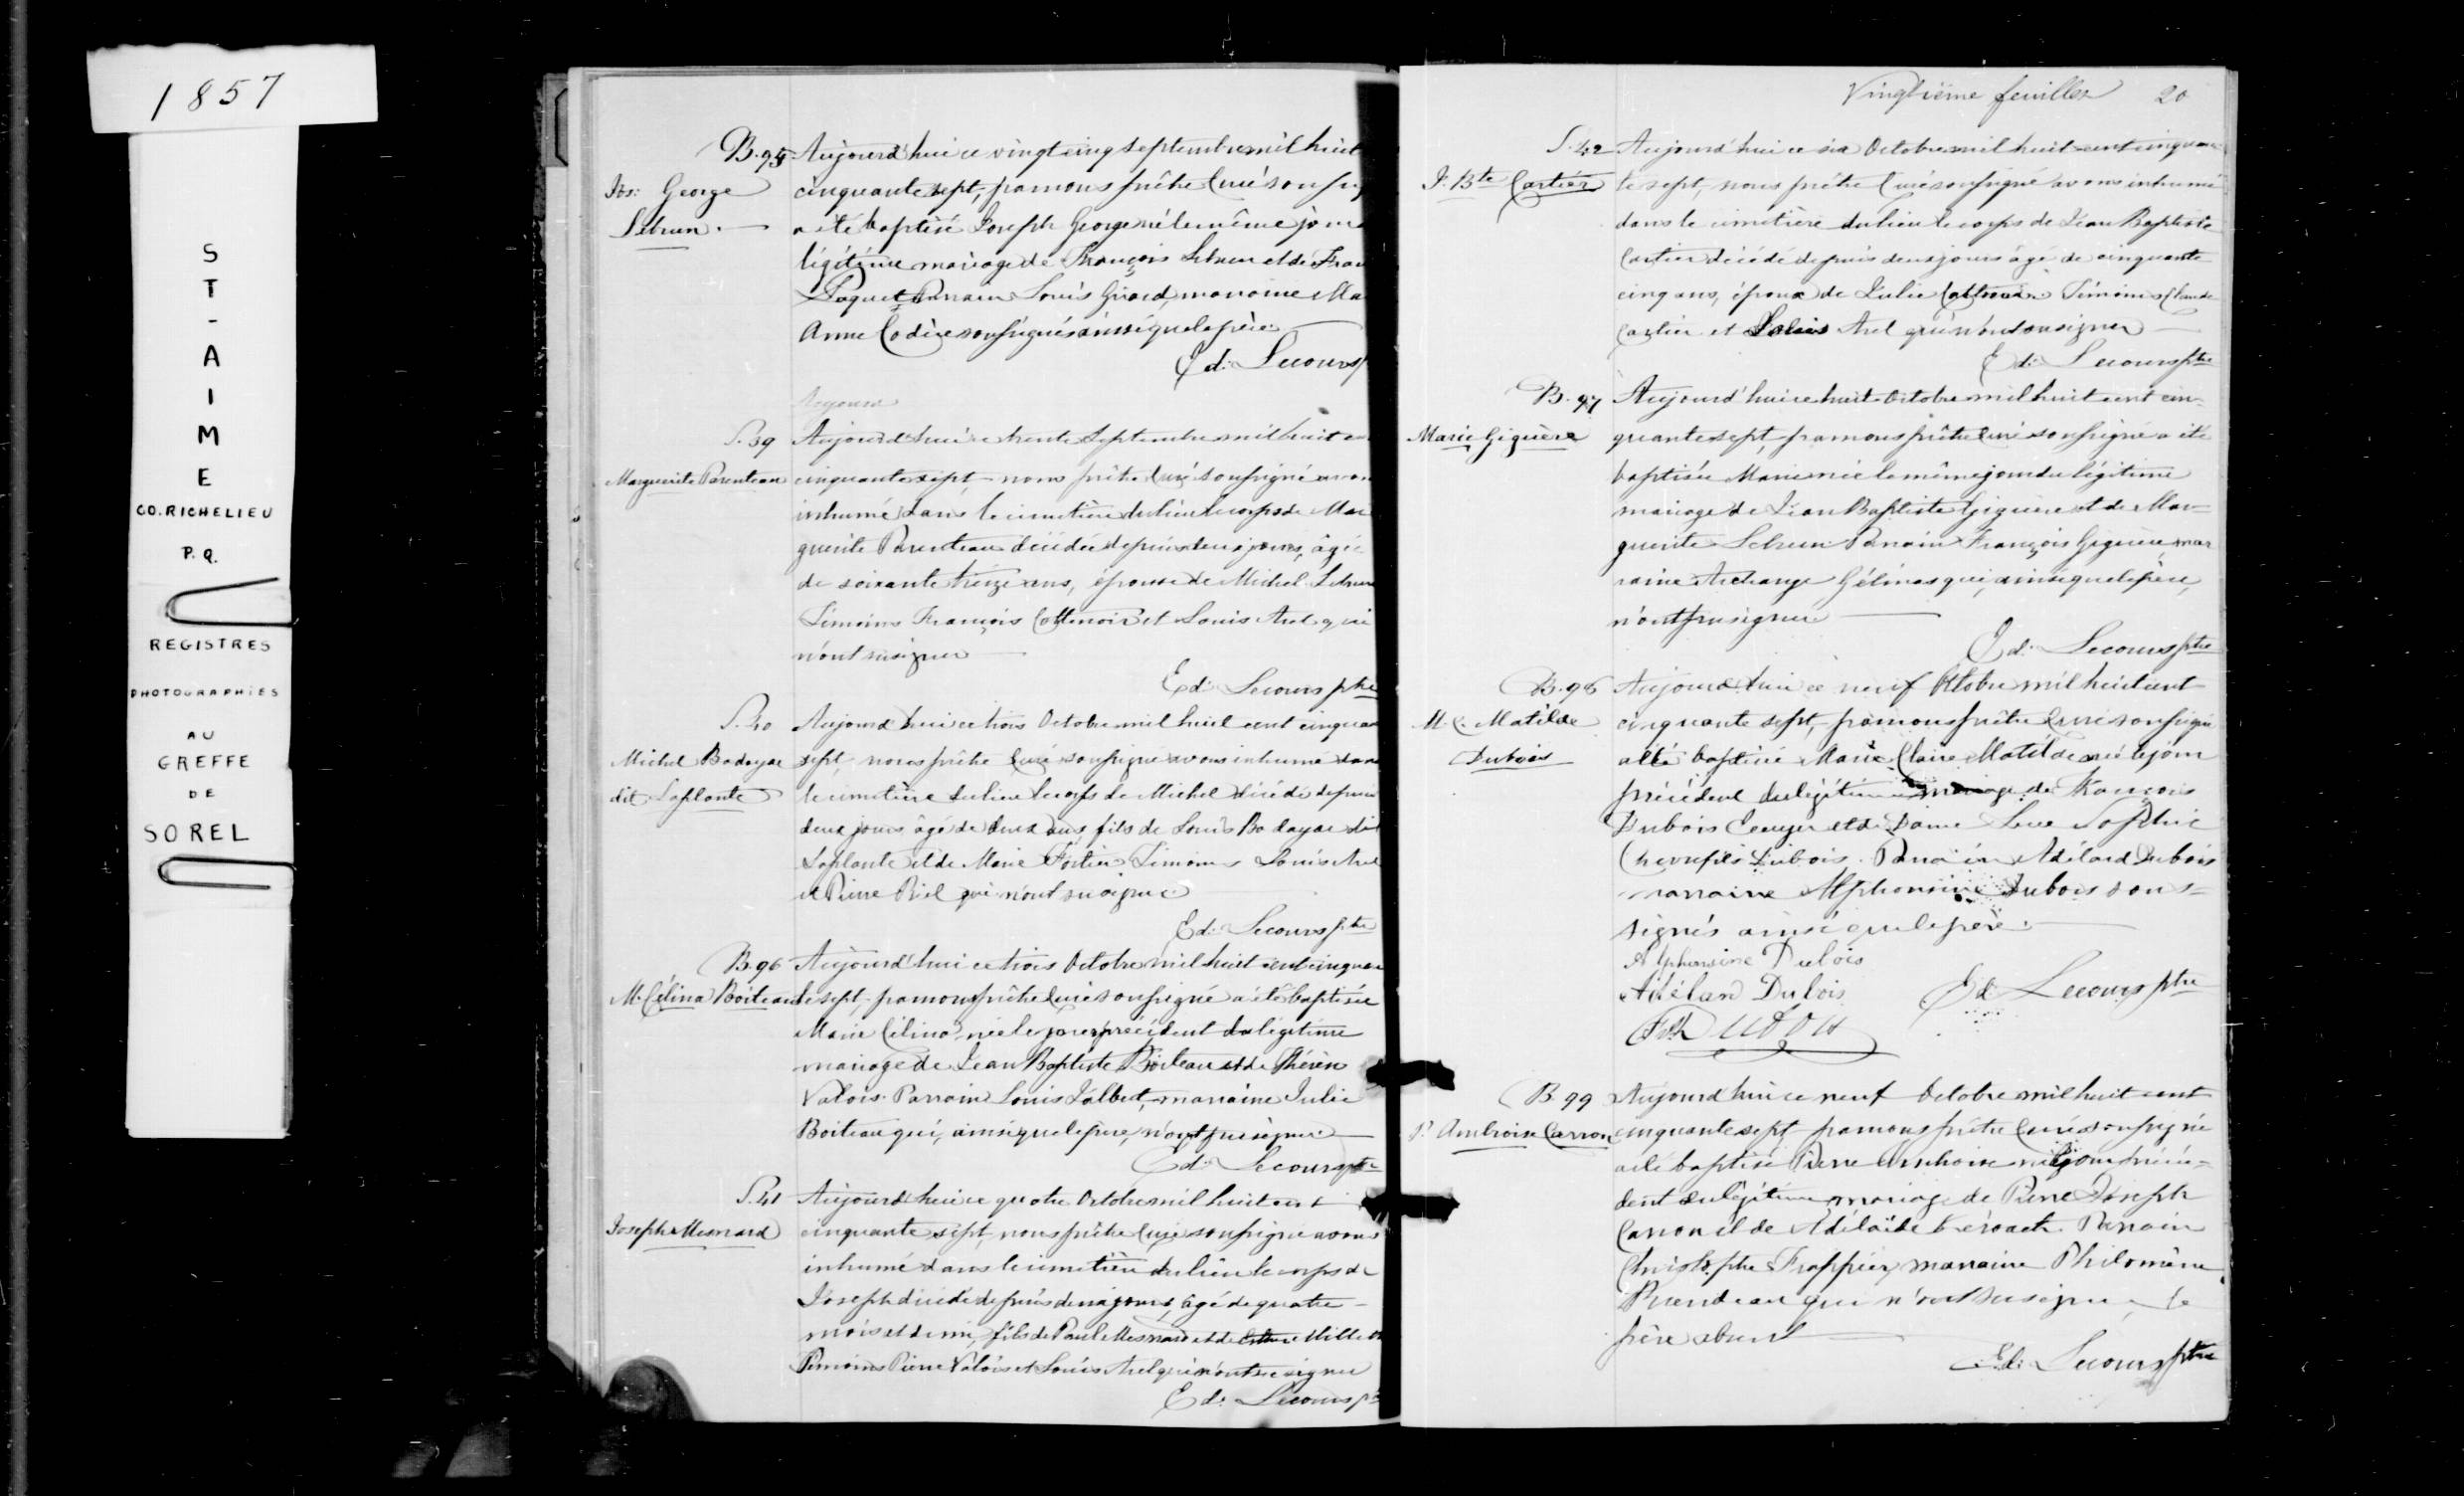 1857
ST-AIME
CO. RICHELIEU
P.Q.
REGISTRES
PHOTOGRAPHIES
AU
GREFFE
DE
SOREL
B. 95 Aujourd'hui ce vingt cinq septembre mil huit
Jos: George cinquante sept, par nous prêtre Curé soussig
Lebrun. a été baptisé Joseph George né le même jour
légitime mariage de François Lebrun et de Fran
Paquet Parrain Louis Girard, marraine Ma
Anne Codère soussignés ainsi que le père
Ed: Lecours p
Aujourd
S. 39 Aujourd'hui ce trente Septembre mil huit cen
Marguerite Parenteau cinquante sept, nous prêtre Curé soussigné avon
inhumé dans le cimetière du lieu le corps de Mar
guerite Parenteau décédée depuis deux jours, âgée
de soixante treize ans, épouse de Michel Lebrun
Témoins François Cottenoir et Louis Huel qui
n'ont su signer
Ed: Lecours ptre
S. 40 Aujourd'hui ce trois Octobre mil huit cent cinquan
Michel Badayac sept, nous prêtre Curé soussigné avons inhumé dans
dit Laplante le cimetière du lieu le corps de Michel décédé depuis
deux jours âgé de deux ans, fils de Louis Badayac dit
Laplante et de Marie Fortier Témoins Louis Huel
et Pierre Riel qui n'ont su signer
Ed: Lecours ptre
B. 96 Aujourd'hui ce trois Octobre mil huit cent cinquan
M. Célina Boiteau te sept, par nous prêtre Curé soussigné a été baptisée
Marie Célina née le jour précédent du légitime
mariage de Jean Baptiste Boiteau et de Thérèse
Valois. Parrain Louis Jalbert, marraine Julie
Boiteau qui, ainsi que le père, n'ont pu signer
Ed: Lecours ptre
S. 41 Aujourd'hui ce quatre Octobre mil huit cent
Joseph Mesnard cinquante sept, nous prêtre Curé soussigné avons
inhumé dans le cimetière du lieu le corps de
Joseph décédé depuis deux jours, âgé de quatre
mois et demi, fils de Paul Mesnard et de
Témoins Pierre Valois et Louis Huel qui n'ont su signer
Ed: Lecours pt
Vingtième feuillet 20
S. 42 Aujourd'hui ce six Octobre mil huit cent cinquan
J. Bte Cartier te sept, nous prêtre Curé soussigné avons inhumé
dans le cimetière du lieu le corps de Jean Baptiste
Cartier décédé depuis deux jours âgé de cinquante
cinq ans, époux de Julie Témoins Claude
Cartier et Louis Huel qui n'ont su signer
Ed: Lecours ptre
B. 97 Aujourd'hui ce huit Octobre mil huit cent cin-
Marie Giguère quante sept, par nous prêtre Curé soussigné a été
baptisée Marie née le même jour du légitime
mariage de Jean Baptiste Giguère et de Mar-
guerite Lebrun Parrain François Giguère, mar
raine Archange Gélinas qui, ainsi que le père,
n'ont pu signer
Ed: Lecours ptre
B. 98 Aujourd'hui ce neuf Octobre mil huit cent
M. C. Matilde cinquante sept, par nous prêtre Curé soussigné
Dubois a été baptisée Marie Claire Matilde née le jour
précédent du légitime mariage de François
Dubois Ecuyer et de Dame Luce Sophie
Chenefils Dubois. Parrain Adélard Dubois
marraine Alphonsine Dubois sous-
signés ainsi que le père.
Alphonsine Dubois
Adélard Dubois Ed: Lecours ptre
B. 99 Aujourd'hui ce neuf Octobre mil huit cent
P. Ambroise Carron cinquante sept par nous prêtre Curé soussigné
a été baptisé Pierre Ambroise né le jour précé-
dent du légitime mariage de Pierre Joseph
Carron et de Adélaïde Parrain
Christophe Frappier, marraine Philomène
qui n'ont su signer, le
père absent
Ed: Lecours ptre